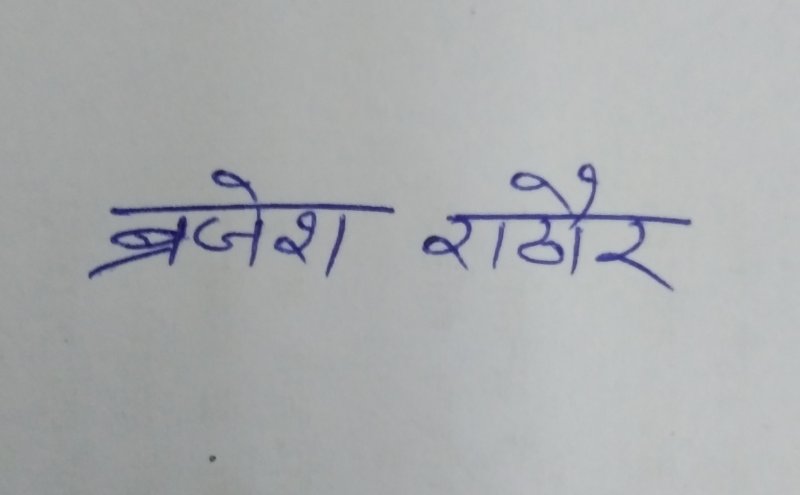 ब्रजेश राठौर